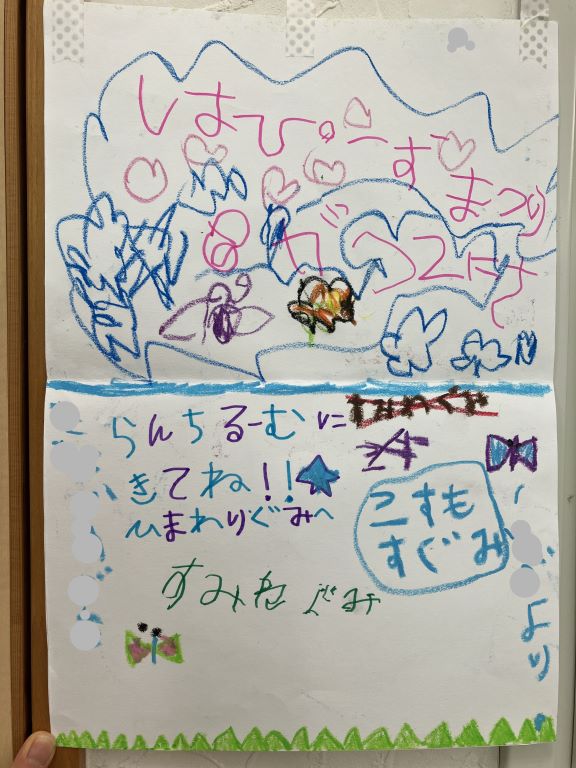 まつり
8がつ2にち
らんちるーむに
きてね!!
ひまわりぐみへ
こすも
すぐみ
すみれぐみ
より